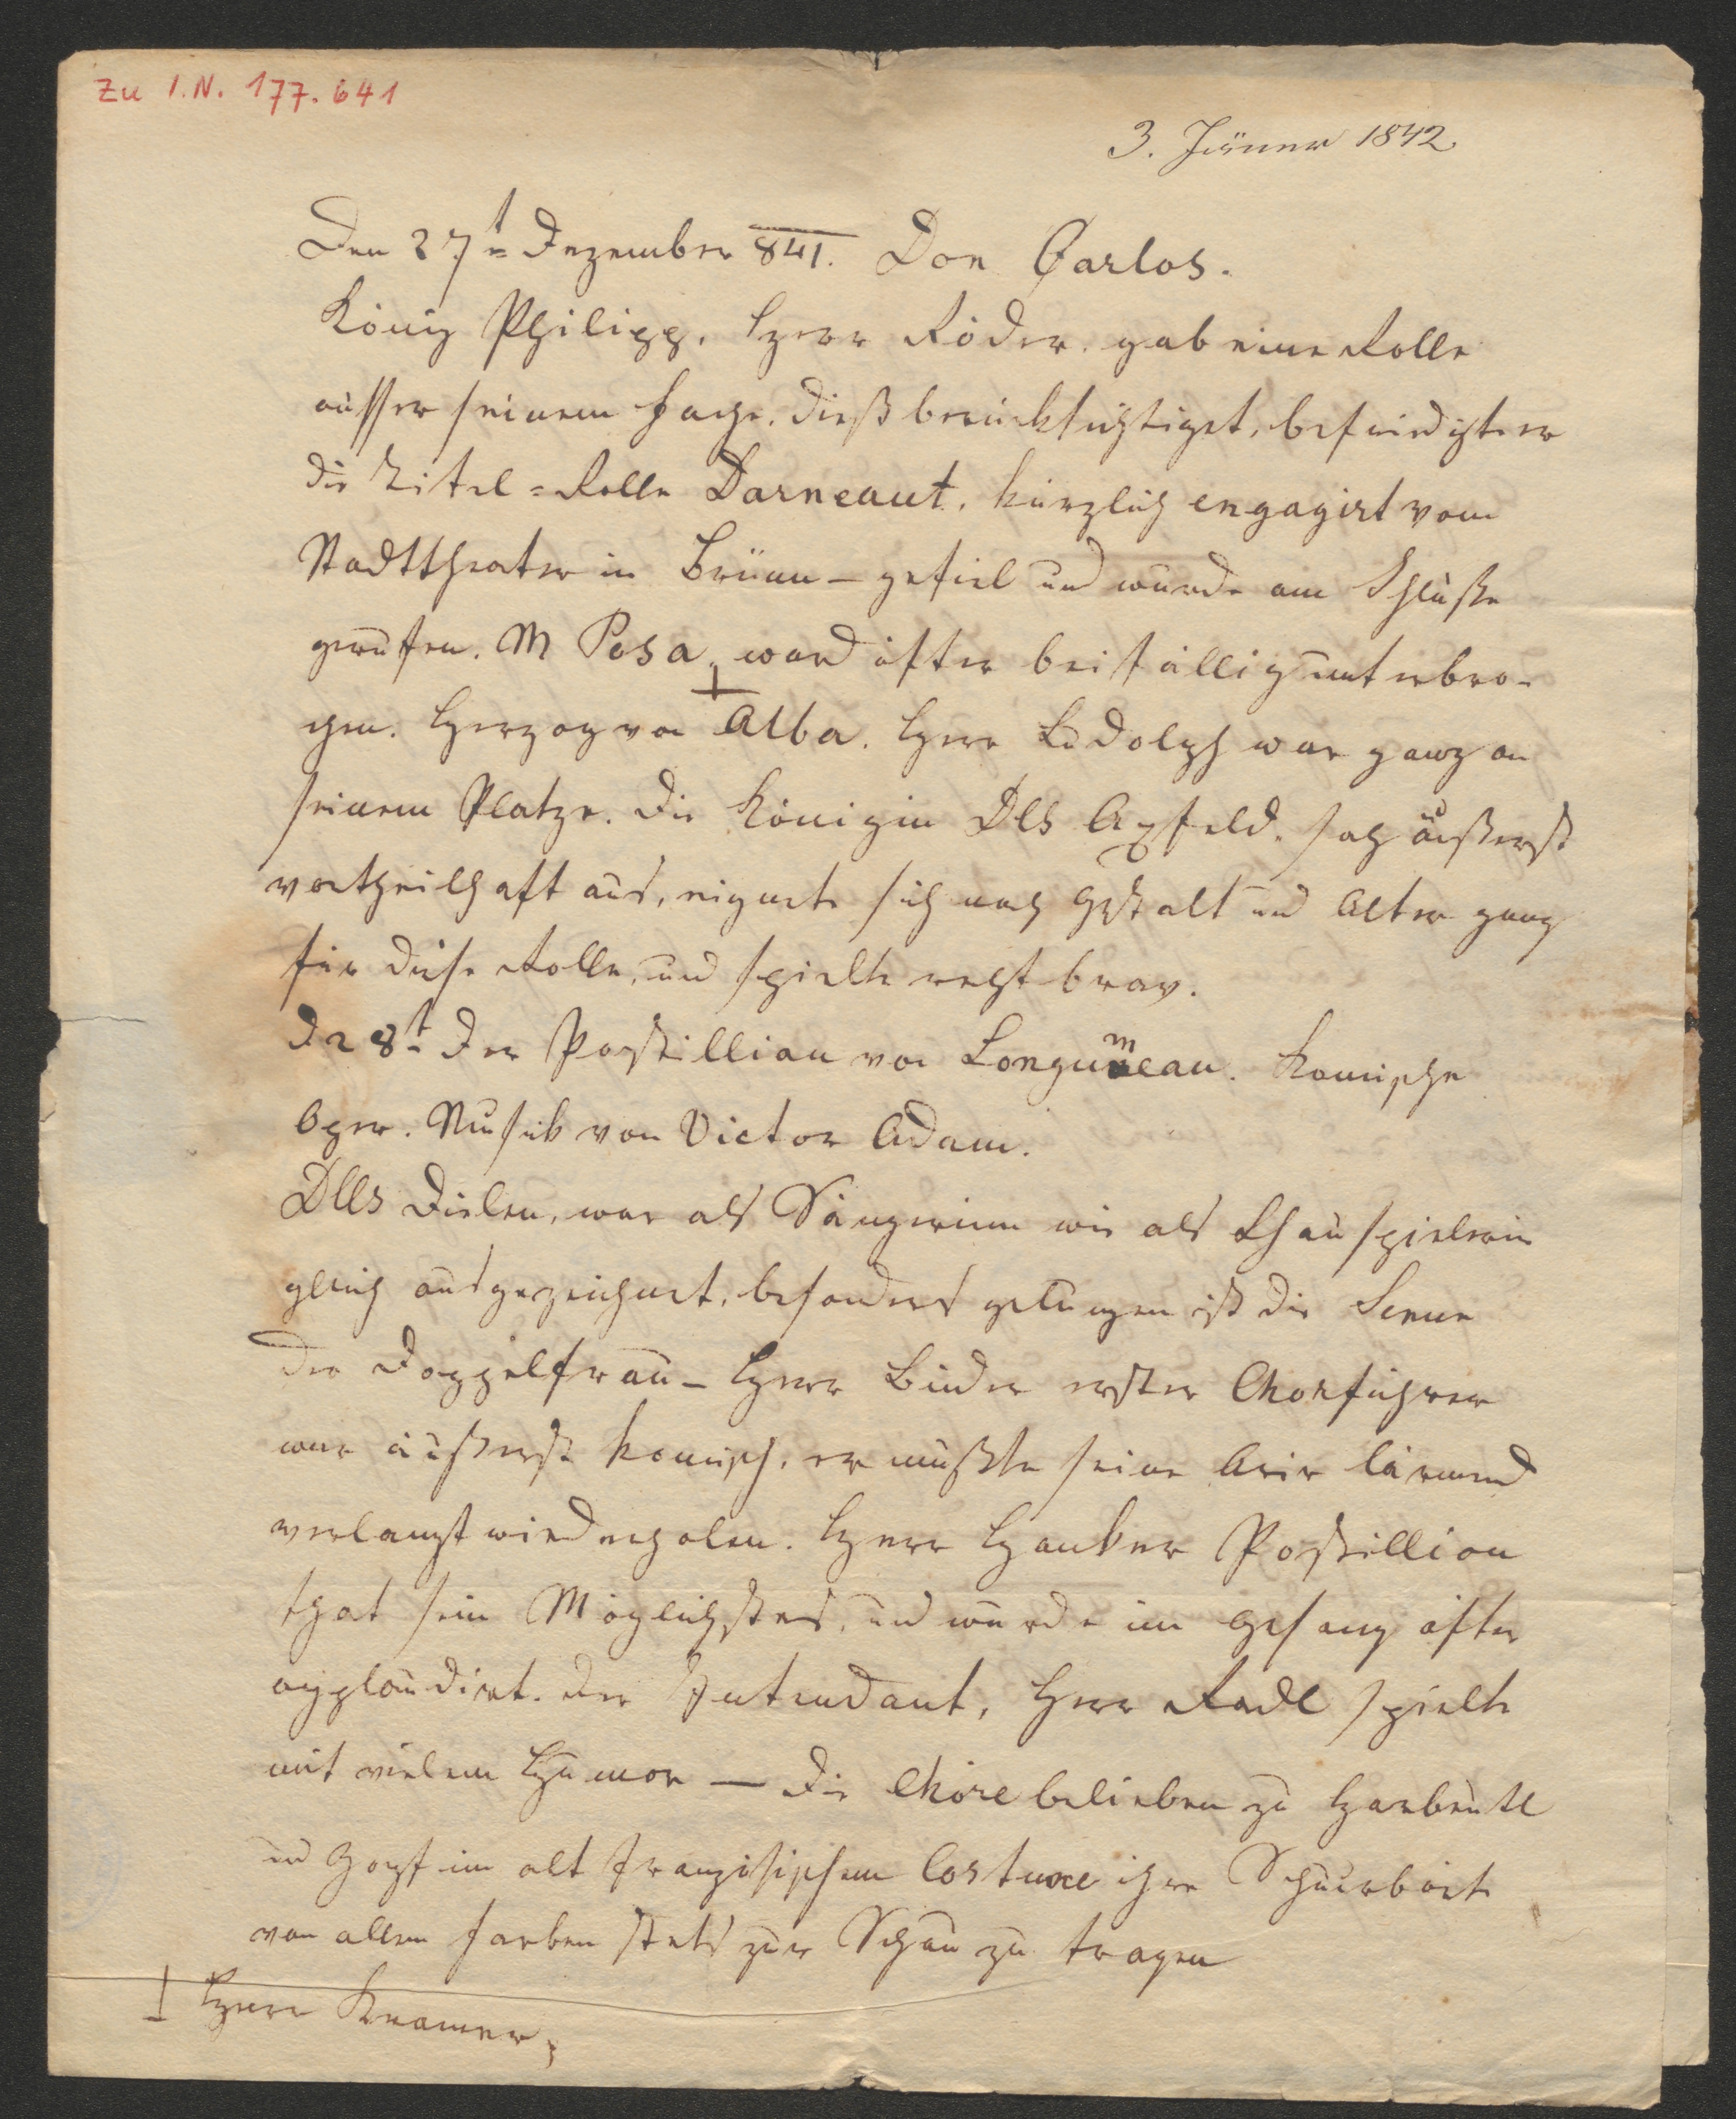 Zu I.N. 177.641
3. Jänner 1842.
Den 27t= Dezember 841. Don Carlos.
König Philipp. Herr Röder. gab eine Rolle
ausser seinem Fache. dieß berücksichtiget, befriedigte er
die Titel=Rolle Darneaut. kürzlich engagirt vom
Stadttheater in Brünn – gefiel und wurde am Schluße
gerufen. M Posa. ⊥ ward öfter beifällig unterbro-
chen. Herzog von Alba. Herr Ludolph war ganz an
seinem Platze. Die Königin Dlls Apfeld. sah äußerst
vortheilhaft aus, eignete sich nach Gestalt und Alter ganz
für diese Rolle, und spielte recht brav.
D 28t Der Postillion von Longumeau. komische
Oper. Musik von Victor Adam.
Dlls Dielen, war als Sängerinn wie als Schauspielerin
gleich ausgezeichnet, besonders gelungen ist die Scene
der Doppelfrau – Herr Binder erster Chorführer
war äußerst komisch. er mußte seine Arie lärmend
verlangt wiederholen. Herr Hanker Postillion
that sein Möglichstes, und wurde im Gesang öfter
applaudirt. Der Intendant, Herr Radl spielte
mit vielem Humor — die Chöre belieben zu Harbeutl
und Zopf im alt französischen Costume ihre Schnurbärte
von allen Farben stets zur Schau zu tragen
⊥ Herr Kramer,